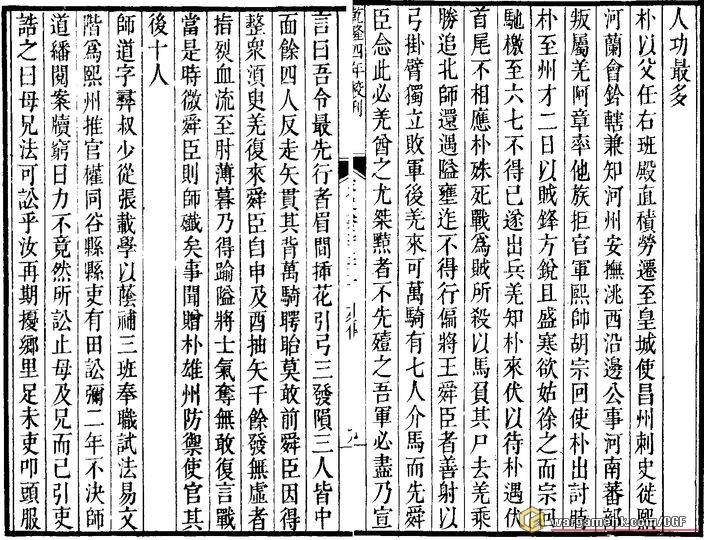 人功最多
朴以父任右班殿直積勞遷至皇城使昌州刺史從熙
河蘭會鈐轄兼知河州安撫洮西沿邊公事河南蕃部
叛屬羌阿章率他族拒官軍熙帥胡宗回使朴出討時
朴至州才二日以賊鋒方銳且盛寒欲姑徐之而宗回
馳檄至六七不得已遂出兵羌知朴來伏以待朴遇伏
首尾不相應朴殊死戰爲賊所殺以馬負其尸去羌乘
勝追北師還遇隘壅迮不得行偏將王舜臣者善射以
弓掛臂獨立敗軍後羌來可萬騎有七人介馬而先舜
臣念此必羌酋之尤桀黠者不先殪之吾軍必盡乃宣
乾隆四年校刊
言曰吾令最先行者眉間揷花引弓三發隕三人皆中
面餘四人反走矢貫其背萬騎愕眙莫敢前舜臣因得
整衆須臾羌復來舜臣自申及酉抽矢千餘發無虛者
指裂血流至肘薄暮乃得踰隘將士氣奪無敢復言戰
當是時微舜臣則師殲矣事聞贈朴雄州防禦使官其
後十人
師道字彝叔少從張載學以蔭補三班奉職試法易文
階爲熙州推官權同谷縣縣吏有田訟彌二年不決師
道繙閱案牘窮日力不竟然所訟止母及兄而已引吏
詰之曰母兄法可訟乎汝再期擾鄉里足未吏叩頭服
wargamehk.com/CGF